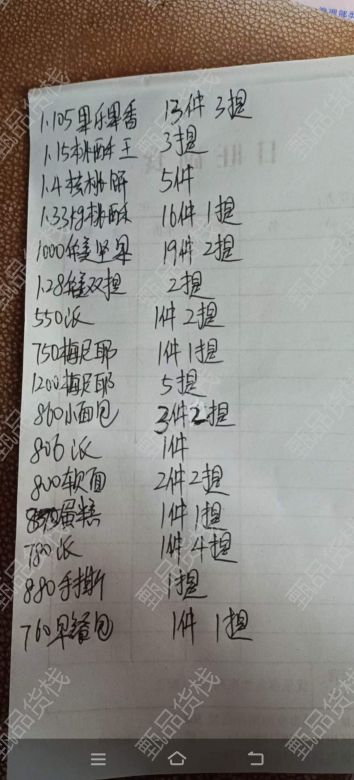 1.105果乐果香 13件3提
1.15桃酥王 3提
1.4核桃酥 5件
1.33kg桃酥 16件1提
1000维坚果 19件2提
1.28维双提 2提
550派 1件2提
750梅尼耶 1件1提
1200梅尼耶 5提
860小面包 3件2提
806派 1件
800软面 2件2提
蛋糕 1件1提
780派 1件4提
880手撕 1提
760早餐包 1件 1提
甄品货栈